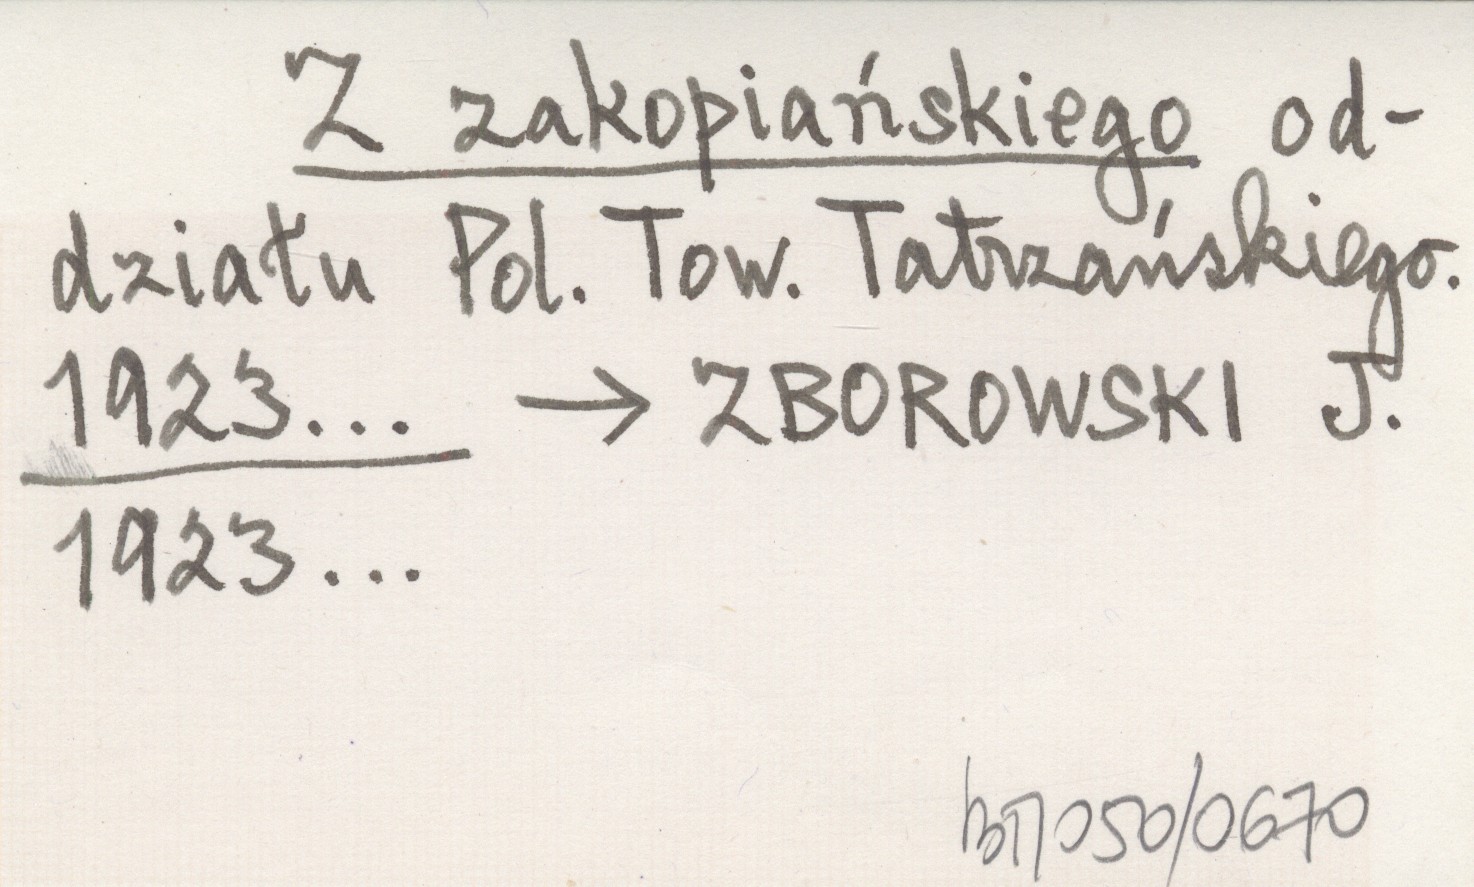 Z zakopiańskiego od-
działu Pol. Tow. Tatrzańskiego.
1923... → ZBOROWSKI J.
1923...
050/0670